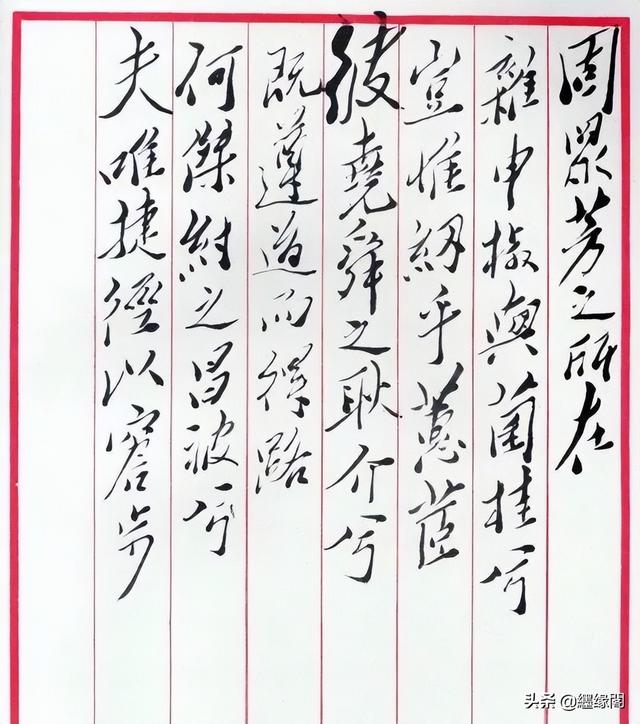 固眾芳之所在
雜申椒與菌桂兮
豈惟紉乎蕙茞
彼堯舜之耿介兮
既遵道而得路
何桀紂之昌被兮
夫唯捷徑以窘步
头条 @繼缘閣